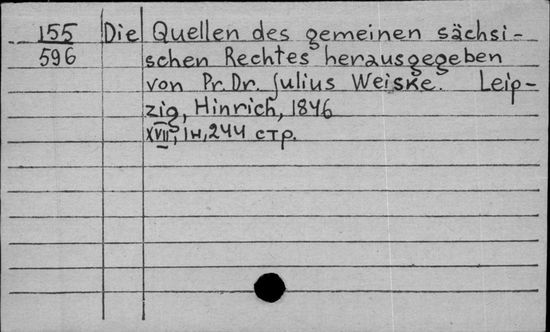 155 Die Quellen des gemeinen sächsi-
596 schen Rechtes herausgegeben
von Pr. Dr. Julius Weiske. Leip-
zig, Hinrich, 1846
XVII, IH, 244 стр.